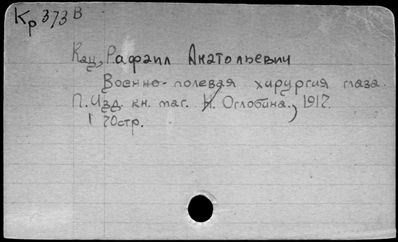 Кр 373В
Кац, Рафаил Анатольевич
Военно-полевая хирургия глаза.
П. Изд. кн. маг. Н. Оглобина, 1917.
70стр.